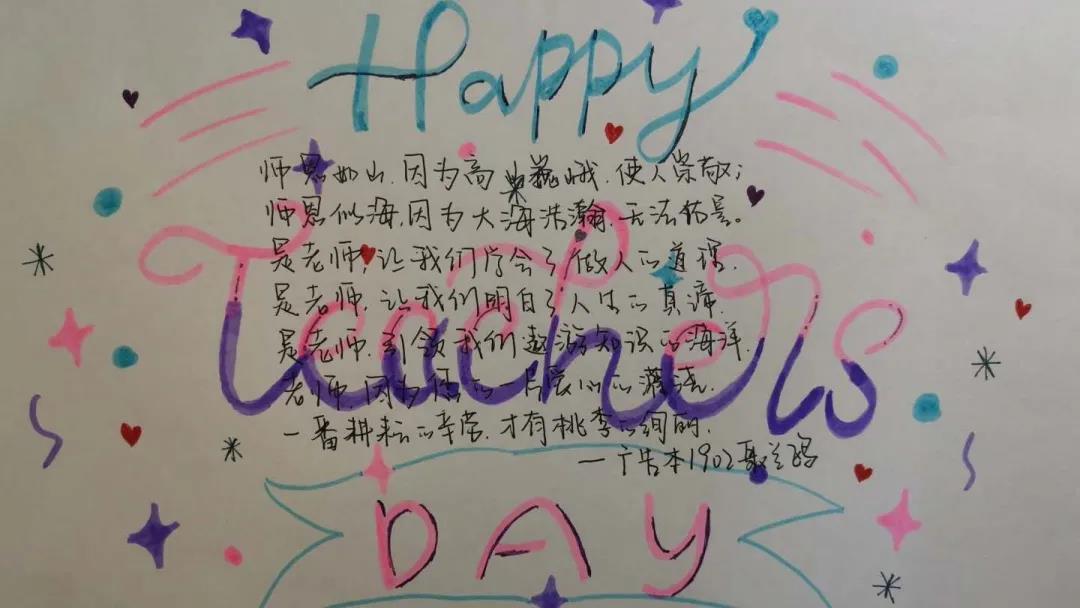 Happy
师恩如山,因为高山巍峨,使人崇敬;
师恩似海,因为大海浩瀚,无法估量。
Teachers
是老师,让我们学会了做人的道理,
是老师,让我们明白了人生的真谛,
是老师,引领我们遨游知识的海洋,
老师,因为您的一片爱心的灌溉,
一番耕耘的辛劳,才有桃李的绚丽,
—广告本1902
DAY